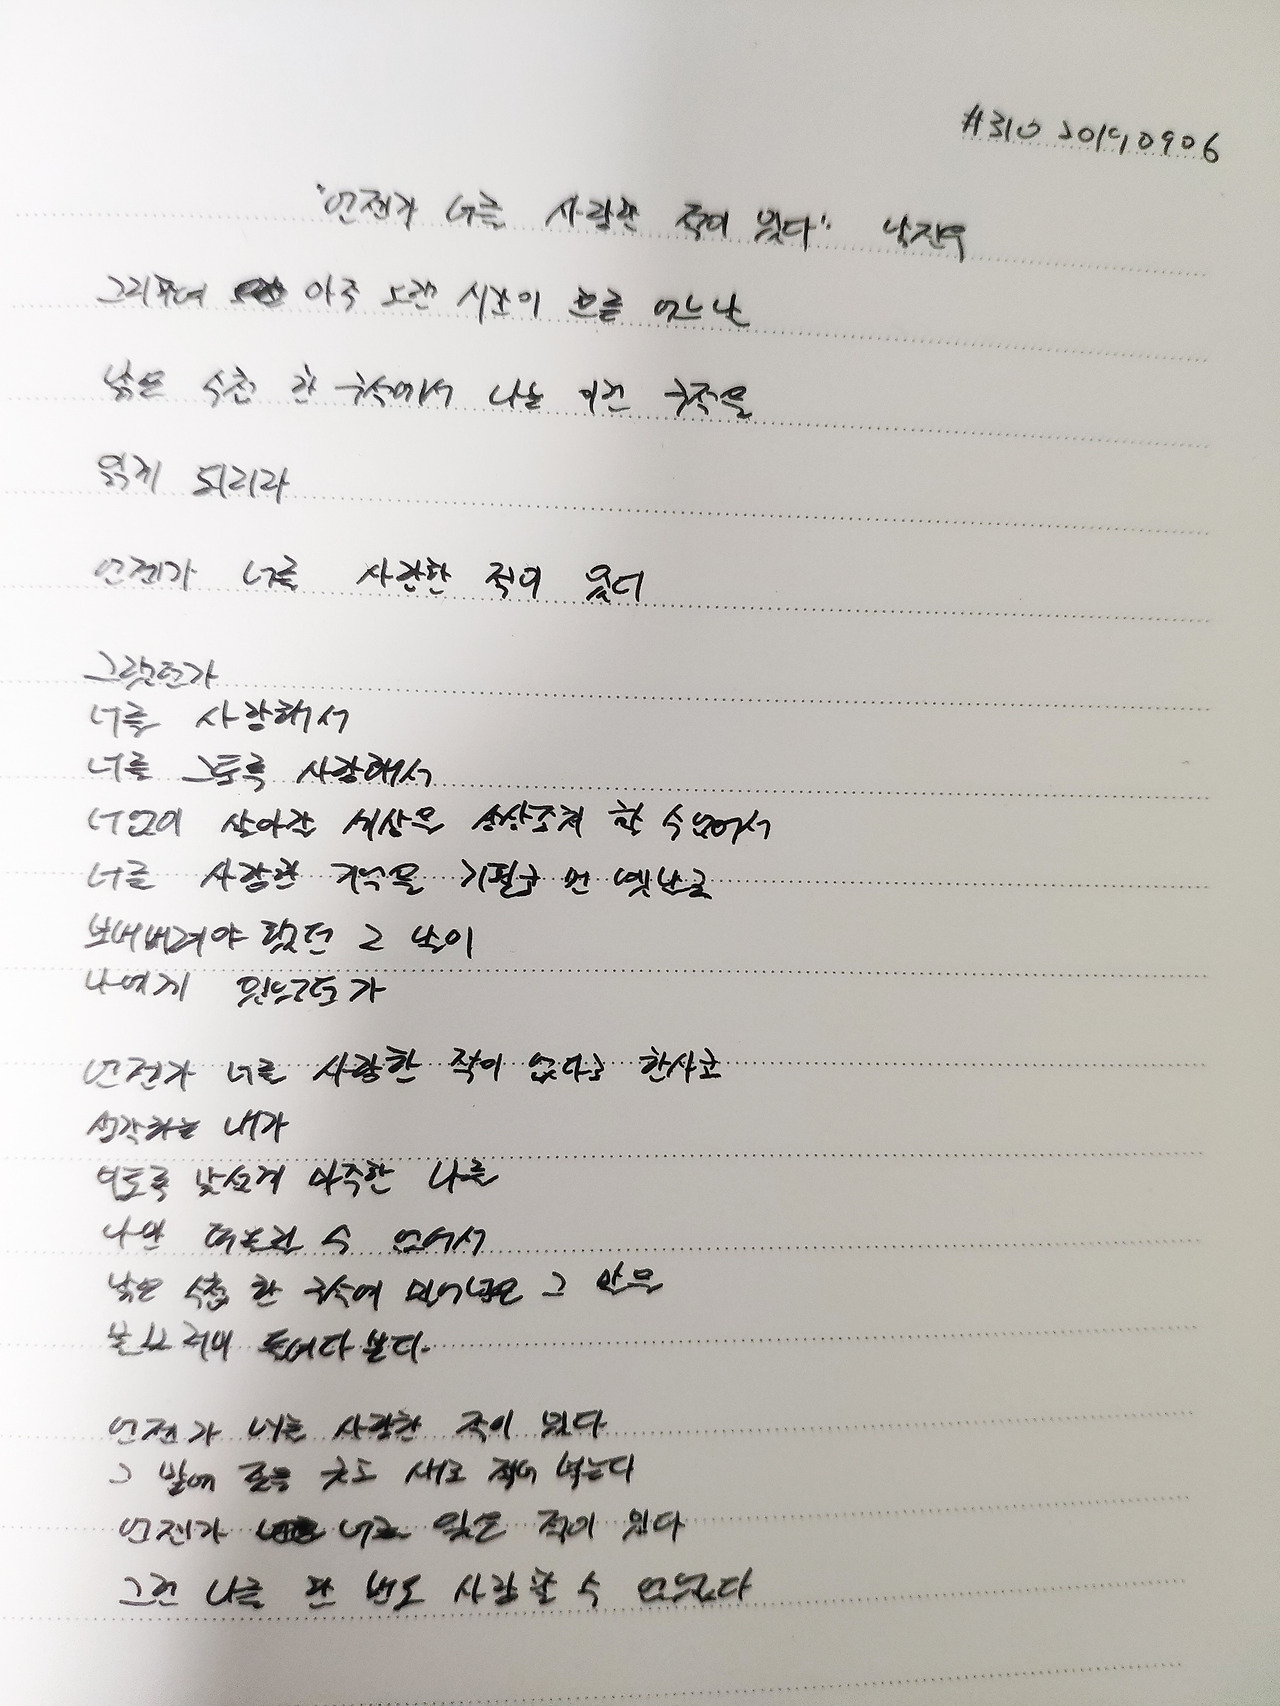 #310 20190906
"언젠가 너를 사랑한 적이 있다" 남진우
그리하여 아주 오랜 시간이 흐를 어느 날
낡은 수첩 한 구석에서 나는 이런 구절을
읽게 되리라
언젠가 너를 사랑한 적이 있다
그랬던가
너를 사랑해서
너를 그토록 사랑해서
너 없이 살아갈 세상을 상상조차 할 수 없어서
너를 사랑한 기억을 기필코 먼 옛날로
보내버려야 했던 그 날이
나에게 있었던가
언젠가 너를 사랑한 적이 없다고 한사코
생각하는 내가
이토록 낯설게 마주한 나를
나만 떠올릴 수 없어서
낡은 수첩 한 구석에 밀어넣은 그 말을
물끄러미 들여다 본다.
언젠가 너를 사랑한 적이 있다
그 말에 줄을 긋고 새로 적어 넣는다
언젠가 너를 잊은 적이 있다
그런 나를 한 번도 사랑할 수 없었다